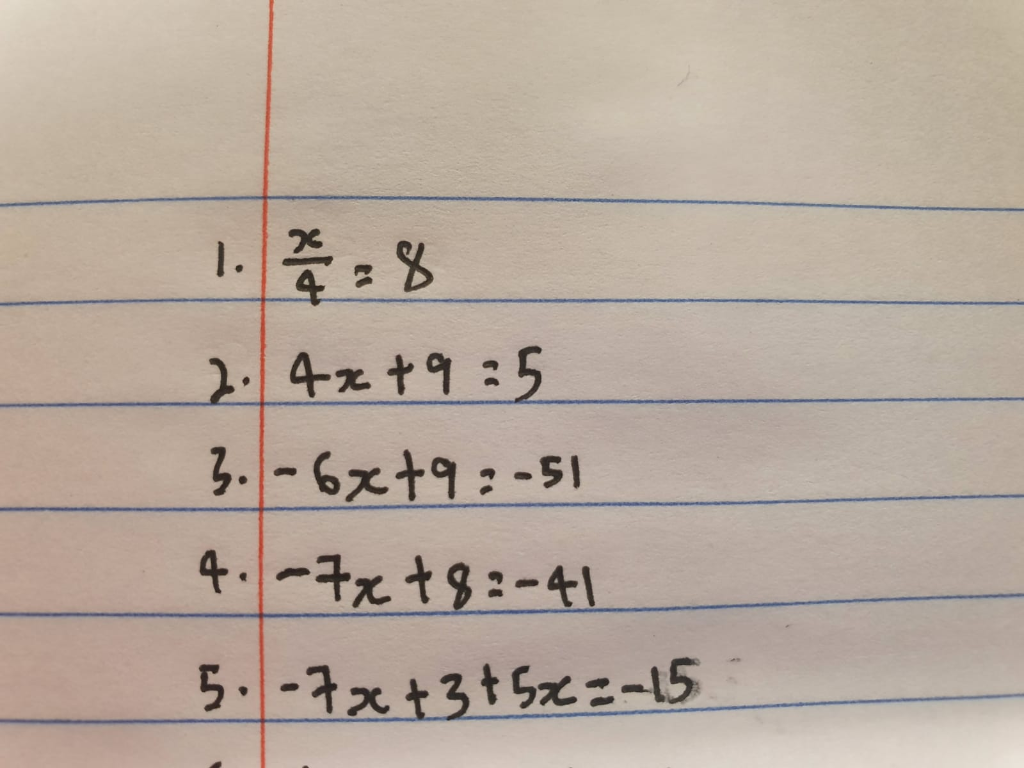 1. x/4 = 8
2. 4x + 9 = 5
3. -6x + 9 = -51
4. -7x + 8 = -41
5. -7x + 3 + 5x = -15